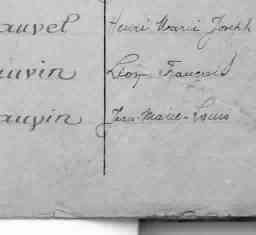 auvel Henri Marie Joseph
auvin Léon François
auvin Jean-Marie-Louis